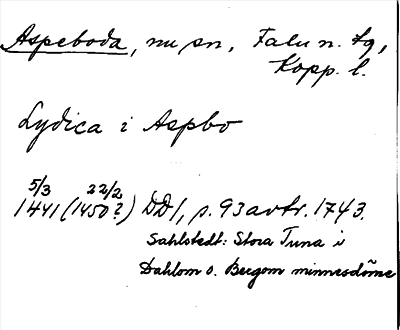 Aspeboda, nu sn, Falu n. tg,
Kopp. l.
Lydica i Aspbo
5/3 22/2
1441 (1450?) DD1, s. 93 avtr. 1743.
Sahlstedt: Stora Tuna i
Dahlom o. Bergom minnesdõme